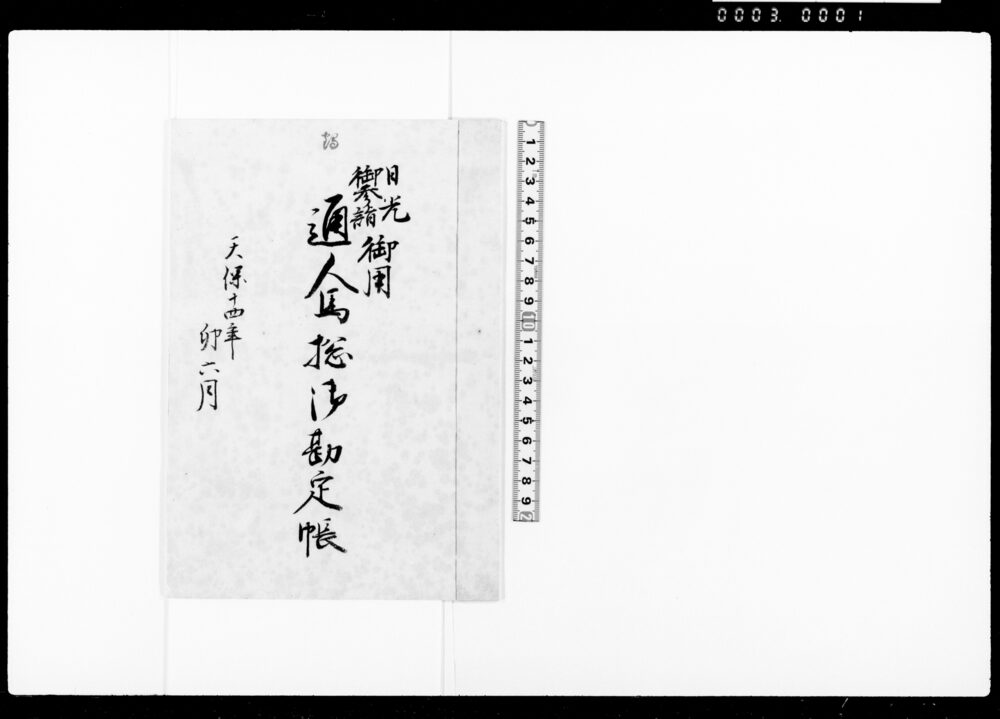 0003.0001
日光
御參詣
御用
通人馬惣御勘定帳
天保十四年
卯六月
1 2 3 4 5 6 7 8 9 10 1 2 3 4 5 6 7 8 9 2